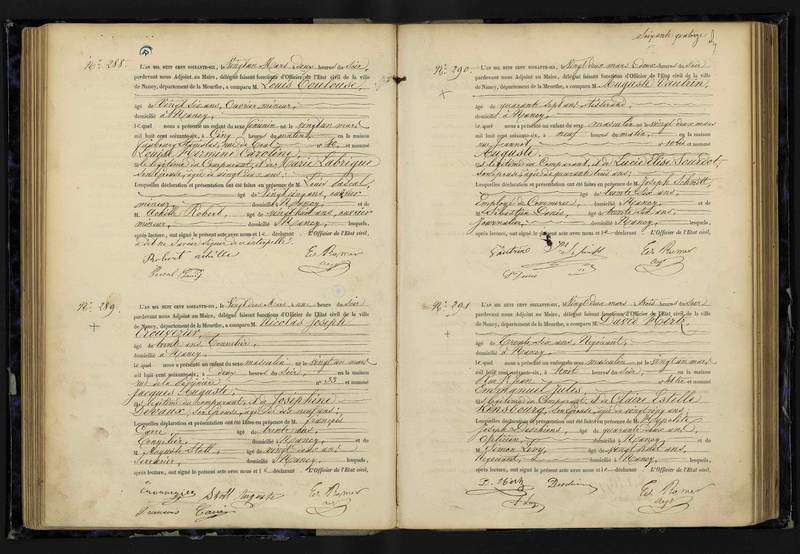 Nº 288.
L'AN MIL HUIT CENT SOIXANTE-SIX, le Vingt un Mars deux heures du Soir,
pardevant nous Adjoint au Maire, délégué faisant fonctions d'Officier de l'Etat civil de la ville
de Nancy, département de la Meurthe, a comparu M. Louis Toulouse,
âgé de Vingt six ans, Ouvrier mineur,
domicilié à Nancy,
lequel nous a présenté un enfant du sexe féminin né le vingt un mars
mil huit cent soixante-six, à Cinq heures du matin, en la maison
faubourg Stanislas, rue de nº et nommé
Louise Hermine Caroline,
fille légitime du Comparant, et de Marie Labrique
son Epouse, âgée de vingt deux ans;
Lesquelles déclaration et présentation ont été faites en présence de M. Louis Pascal,
âgé de Vingt cinq ans, ouvrier
mineur, domicilié à Nancy, et de
M. Achille Robert, âgé de vingt huit ans, ouvrier
mineur, domicilié à Nancy, lesquels,
après lecture, ont signé le présent acte avec nous et le déclarant L'Officier de l'Etat civil,
a dit ne savoir signer de ce interpellé.
Robert achille
Pascal Louis
Nº 289.
L'AN MIL HUIT CENT SOIXANTE-SIX, le Vingt deux Mars une heure du Soir
pardevant nous Adjoint au Maire, délégué faisant fonctions d'Officier de l'Etat civil de la ville
de Nancy, département de la Meurthe, a comparu M. Nicolas Joseph
Crouvezier,
âgé de trente ans Tonnelier,
domicilié à Nancy,
lequel nous a présenté un enfant du sexe masculin né le vingt un mars
mil huit cent soixante-six, à deux heures du Soir, en la maison
rue de la nº 133 et nommé
Jacques Auguste,
fils légitime du comparant, et de Joséphine
Devaux, son Epouse, âgée de dix neuf ans;
Lesquelles déclaration et présentation ont été faites en présence de M. François
Carré âgé de trente ans,
Tonnelier, domicilié à Nancy, et de
M. Auguste Stoll, âgé de vingt deux ans,
Serrurier, domicilié à Nancy, lesquels,
après lecture, ont signé le présent acte avec nous et le déclarant L'Officier de l'Etat civil,
Crouvezier Stoll Auguste
François Carré
Nº 290.
L'AN MIL HUIT CENT SOIXANTE-SIX, le Vingt deux mars deux heures du Soir
pardevant nous Adjoint au Maire, délégué faisant fonctions d'Officier de l'Etat civil de la ville
de Nancy, département de la Meurthe, a comparu M. Auguste Vautrin,
âgé de quarante sept ans
domicilié à Nancy,
lequel nous a présenté un enfant du sexe masculin né le vingt deux mars
mil huit cent soixante-six, à neuf heures du matin, en la maison
rue Jeannot, nº et nommé
Auguste,
fils légitime du Comparant, et de Lucie Elise Sourdot,
son Epouse, âgée de quarante trois ans;
Lesquelles déclaration et présentation ont été faites en présence de M. Joseph Schmitt,
âgé de trente six ans,
Employé de Commerce, domicilié à Nancy, et de
M. Sébastien Denis, âgé de trente six ans,
Journalier, domicilié à Nancy, lesquels,
après lecture, ont signé le présent acte avec nous et le déclarant L'Officier de l'Etat civil,
Vautrin J. Schmitt
Sn Denis
Nº 291
L'AN MIL HUIT CENT SOIXANTE-SIX, le Vingt deux mars trois heures du Soir
pardevant nous Adjoint au Maire, délégué faisant fonctions d'Officier de l'Etat civil de la ville
de Nancy, département de la Meurthe, a comparu M. David Hirtz,
âgé de Trente six ans, Négociant,
domicilié à Nancy,
lequel nous a présenté un enfant du sexe masculin né le vingt un mars
mil huit cent soixante-six, à huit heures du Soir, en la maison
rue St Jean nº et nommé
Emmanuel Jules,
fils légitime du Comparant et de Claire Estelle
Rensbourg, son Epouse, âgée de vingt cinq ans;
Lesquelles déclaration et présentation ont été faites en présence de M. Hypolite
Joseph âgé de quarante deux ans,
Opticien, domicilié à Nancy, et de
M. Simon Lévy, âgé de vingt huit ans,
Négociant, domicilié à Nancy, lesquels,
après lecture, ont signé le présent acte avec nous et le déclarant L'Officier de l'Etat civil,
D. Hirtz
S. Lévy